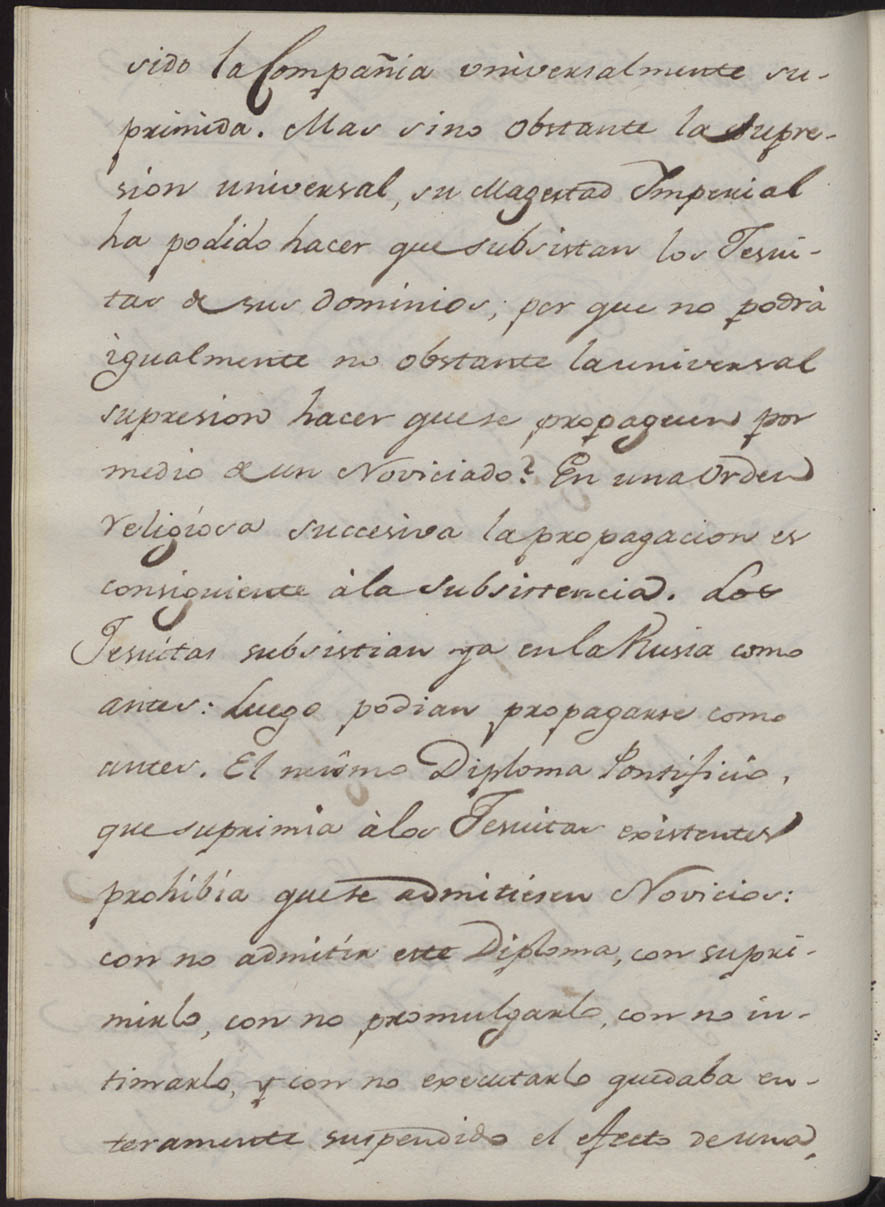 sido la Compañia vniversalmente su-
primida. Mas sino obstante la supre-
sion universal, su Magestad Imperial
ha podido hacer que subsistan los Jesui-
tas de sus dominios; por que no podrà
igualmente no obstante la universal
supresion hacer que se propaguen por
medio de un Noviciado? En una Orden
religiosa succesiva la propagacion es
consiguiente à la subsistencia. Los
Jesuitas subsistian ya en la Rusia como
antes: Luego podian propagarse como
antes. El mismo Diploma Pontificio,
que suprimia à los Jesuitas existentes
prohibia que se admitiesen Novicios:
con no admitir este Diploma, con supri-
mirlo, con no promulgarlo, con no in-
timarlo, y con no executarlo quedaba en-
teramente suspendido el efecto de una